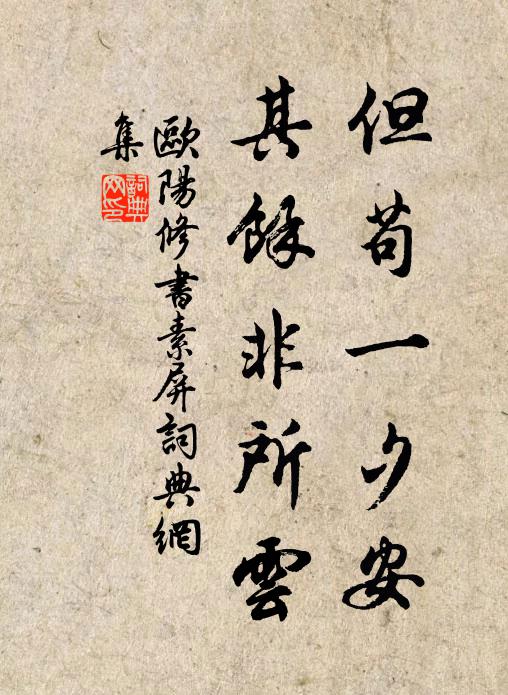 但苟一夕安
其餘非所雲
歐陽修書素屏詞典網
集
詞典
网印